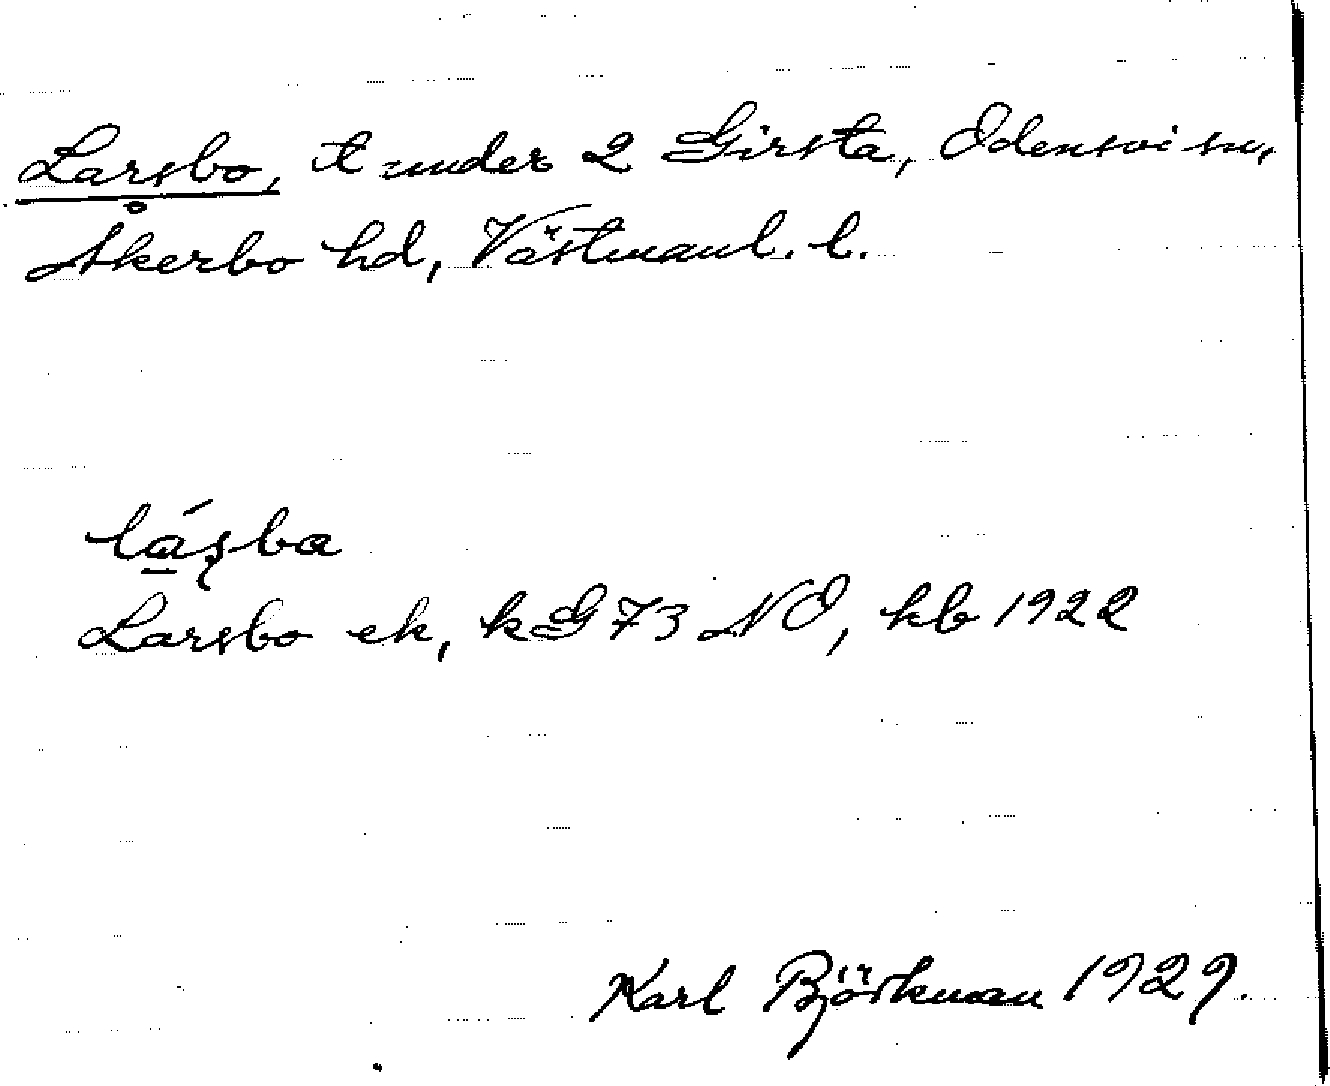 Larsbo, t under 2 Girsta, Odensvi sn,
Åkerbo hd, Västmanl. l.
lá̱ʂba
Larsbo ek, kG 73 NO, kb 1922
Karl Björkman 1929.